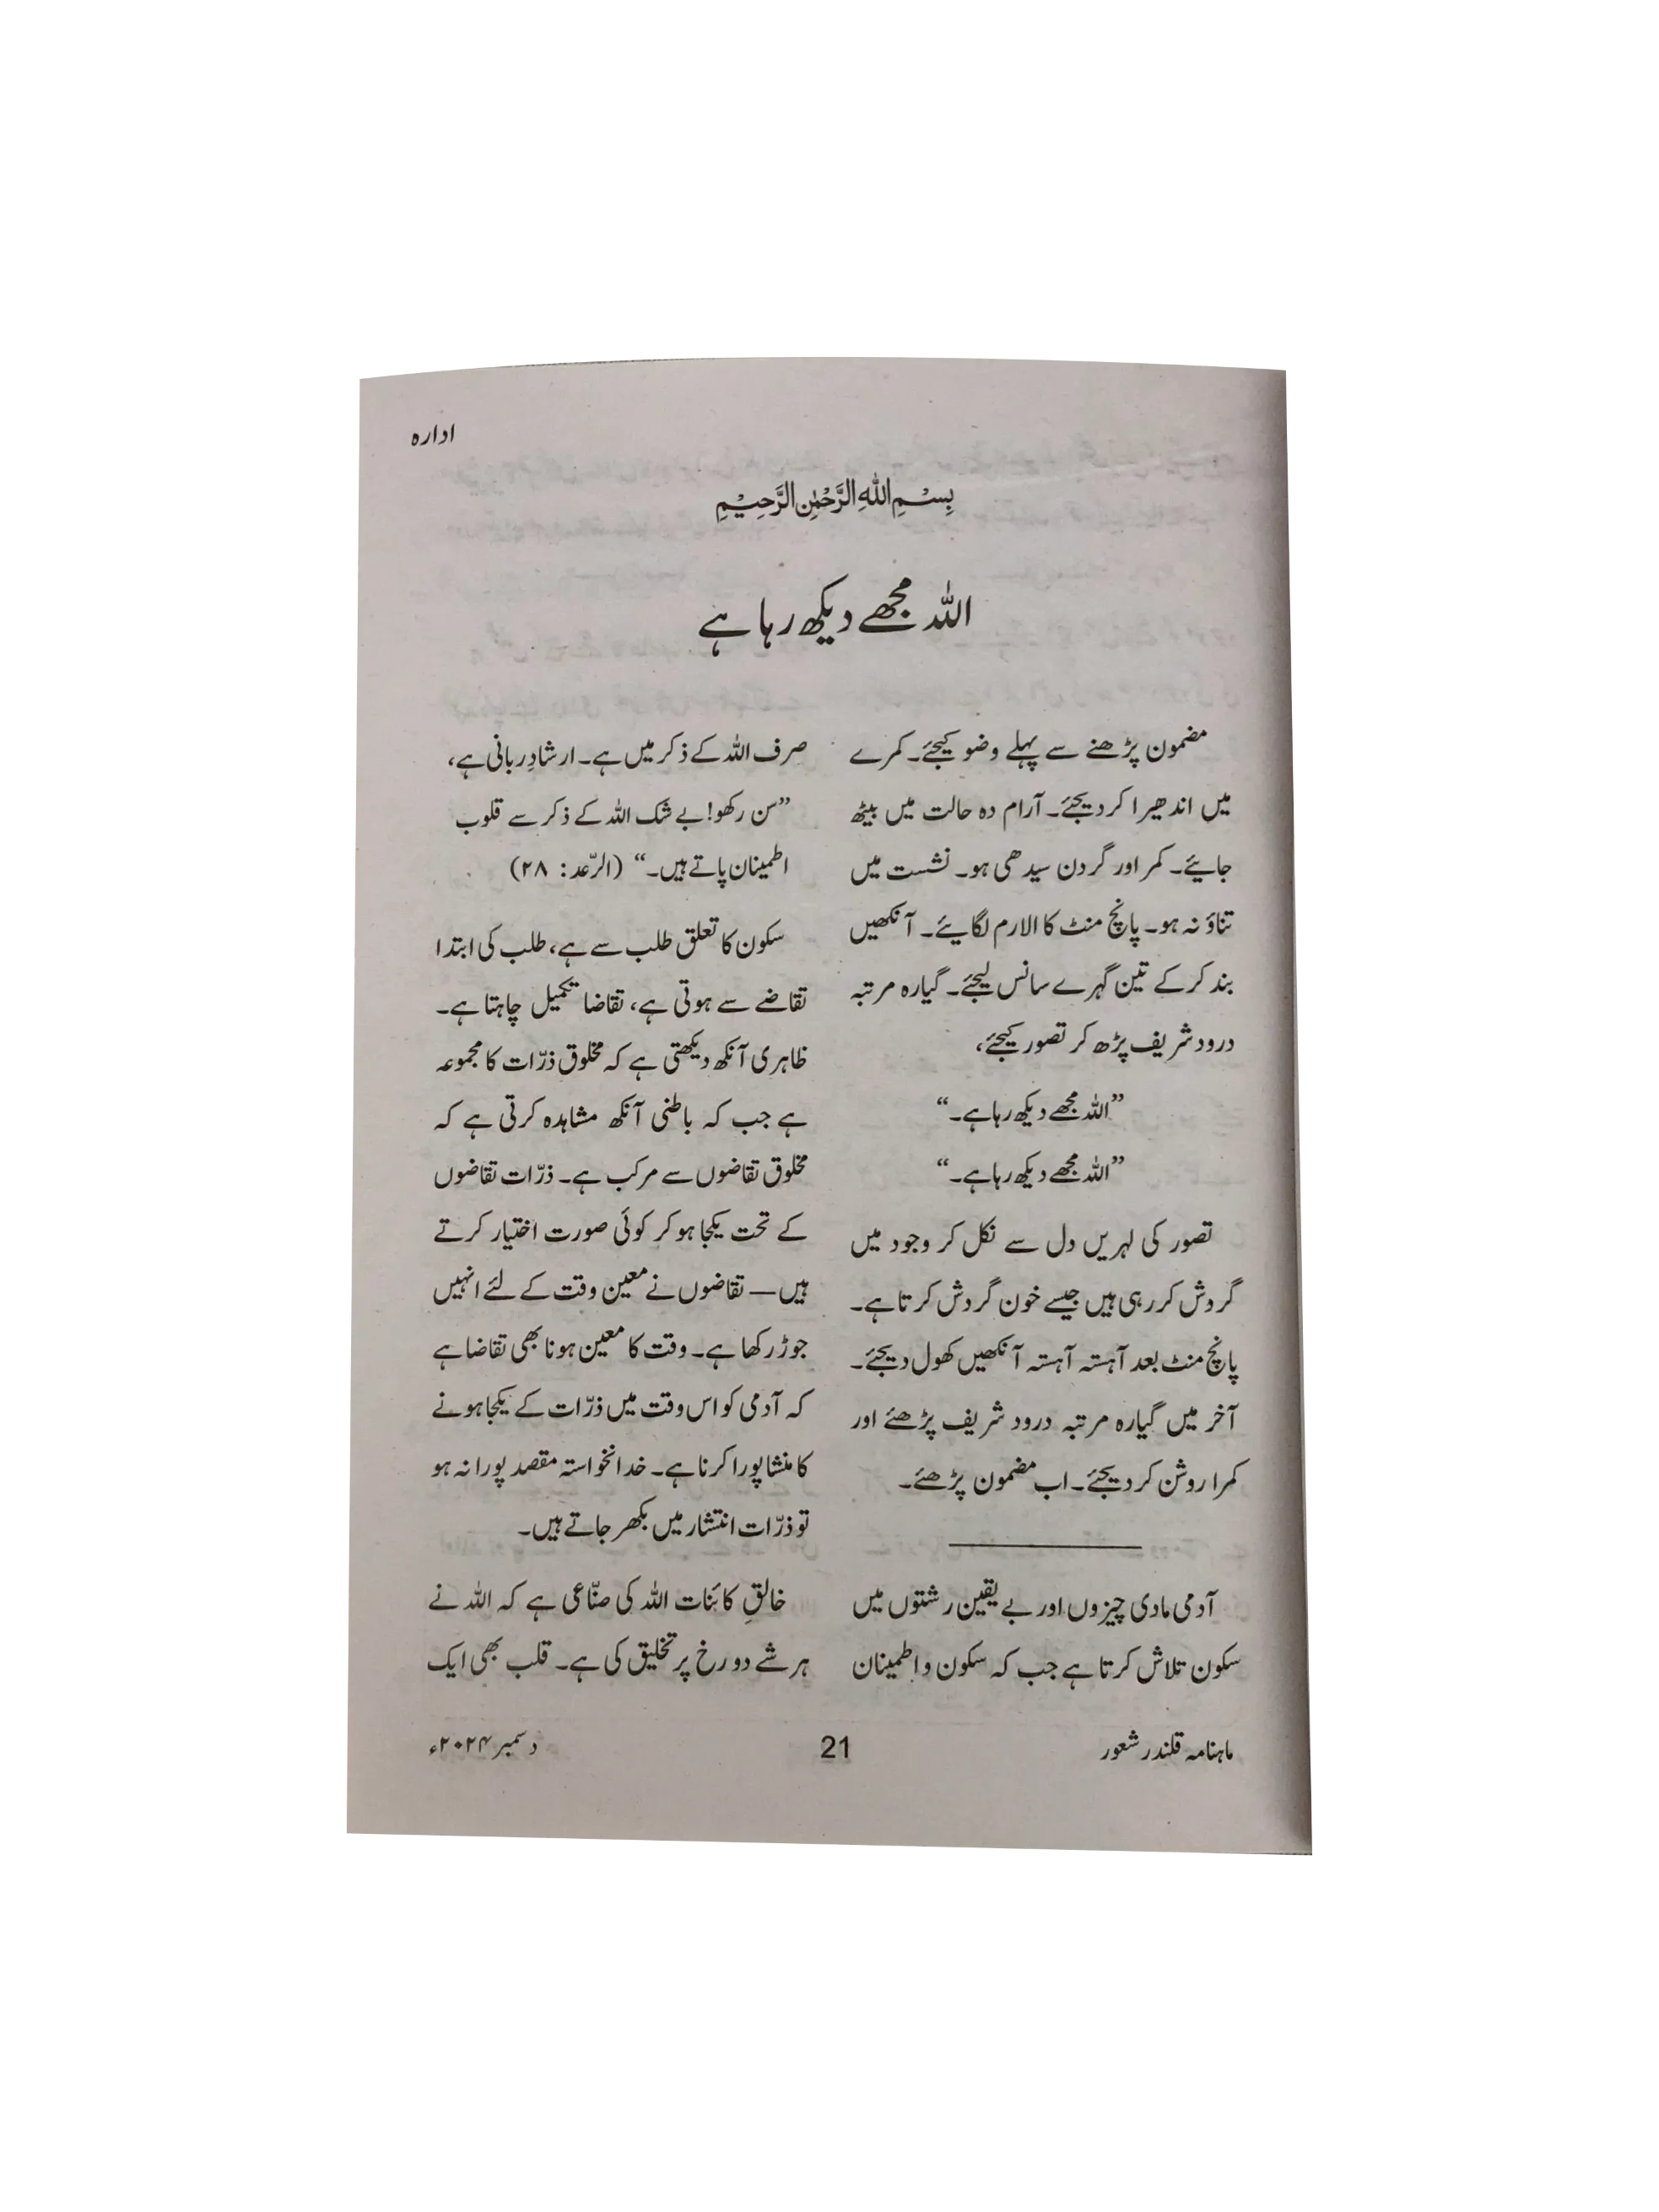 ادارہ
بِسْمِ اللهِ الرَّحْمٰنِ الرَّحِيْمِ
اللہ مجھے دیکھ رہا ہے
مضمون پڑھنے سے پہلے وضو کیجئے۔ کمرے
میں اندھیرا کردیجئے۔ آرام دہ حالت میں بیٹھ
جایئے۔ کمر اور گردن سیدھی ہو۔ نشست میں
تناؤ نہ ہو۔ پانچ منٹ کا الارم لگایئے۔ آنکھیں
بند کرکے تین گہرے سانس لیجئے۔ گیارہ مرتبہ
درود شریف پڑھ کر تصور کیجئے،
”اللہ مجھے دیکھ رہا ہے۔“
”اللہ مجھے دیکھ رہا ہے۔“
تصور کی لہریں دل سے نکل کر وجود میں
گردش کررہی ہیں جیسے خون گردش کرتا ہے۔
پانچ منٹ بعد آہستہ آہستہ آنکھیں کھول دیجئے۔
آخر میں گیارہ مرتبہ درود شریف پڑھئے اور
کمرا روشن کردیجئے۔ اب مضمون پڑھئے۔
آدمی مادی چیزوں اور بے یقین رشتوں میں
سکون تلاش کرتا ہے جب کہ سکون و اطمینان
صرف اللہ کے ذکر میں ہے۔ ارشادِ ربانی ہے،
”سن رکھو! بے شک اللہ کے ذکر سے قلوب
اطمینان پاتے ہیں۔“ (الرّعد: ۲۸)
سکون کا تعلق طلب سے ہے، طلب کی ابتدا
تقاضے سے ہوتی ہے، تقاضا تکمیل چاہتا ہے۔
ظاہری آنکھ دیکھتی ہے کہ مخلوق ذرّات کا مجموعہ
ہے جب کہ باطنی آنکھ مشاہدہ کرتی ہے کہ
مخلوق تقاضوں سے مرکب ہے۔ ذرّات تقاضوں
کے تحت یکجا ہوکر کوئی صورت اختیار کرتے
ہیں — تقاضوں نے معین وقت کے لئے انہیں
جوڑ رکھا ہے۔ وقت کا معین ہونا بھی تقاضا ہے
کہ آدمی کو اس وقت میں ذرّات کے یکجا ہونے
کا منشا پورا کرنا ہے۔ خدانخواستہ مقصد پورا نہ ہو
تو ذرّات انتشار میں بکھر جاتے ہیں۔
خالقِ کائنات اللہ کی صنّاعی ہے کہ اللہ نے
ہر شے دو رخ پر تخلیق کی ہے۔ قلب بھی ایک
ماہنامہ قلندر شعور
21
دسمبر ۲۰۲۴ء